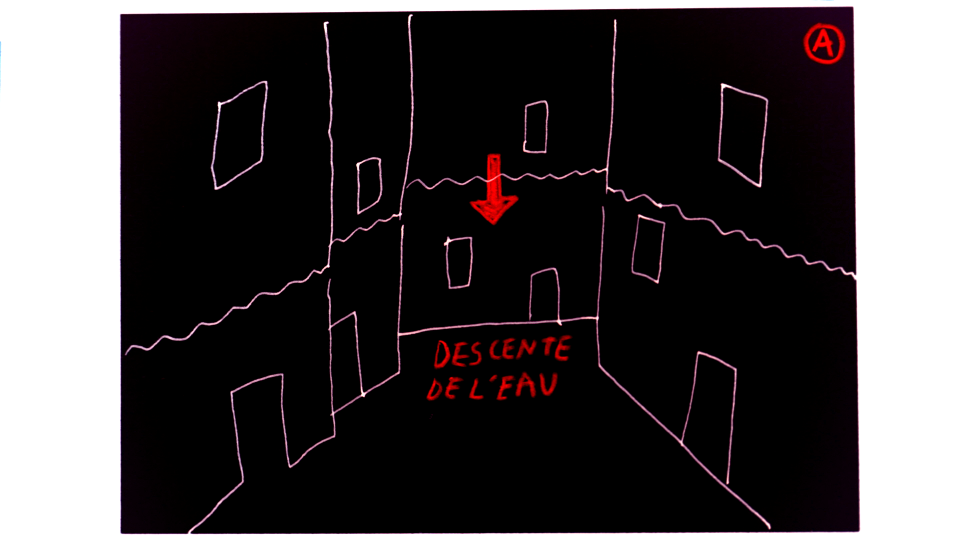 A
DESCENTE
DE L'EAU